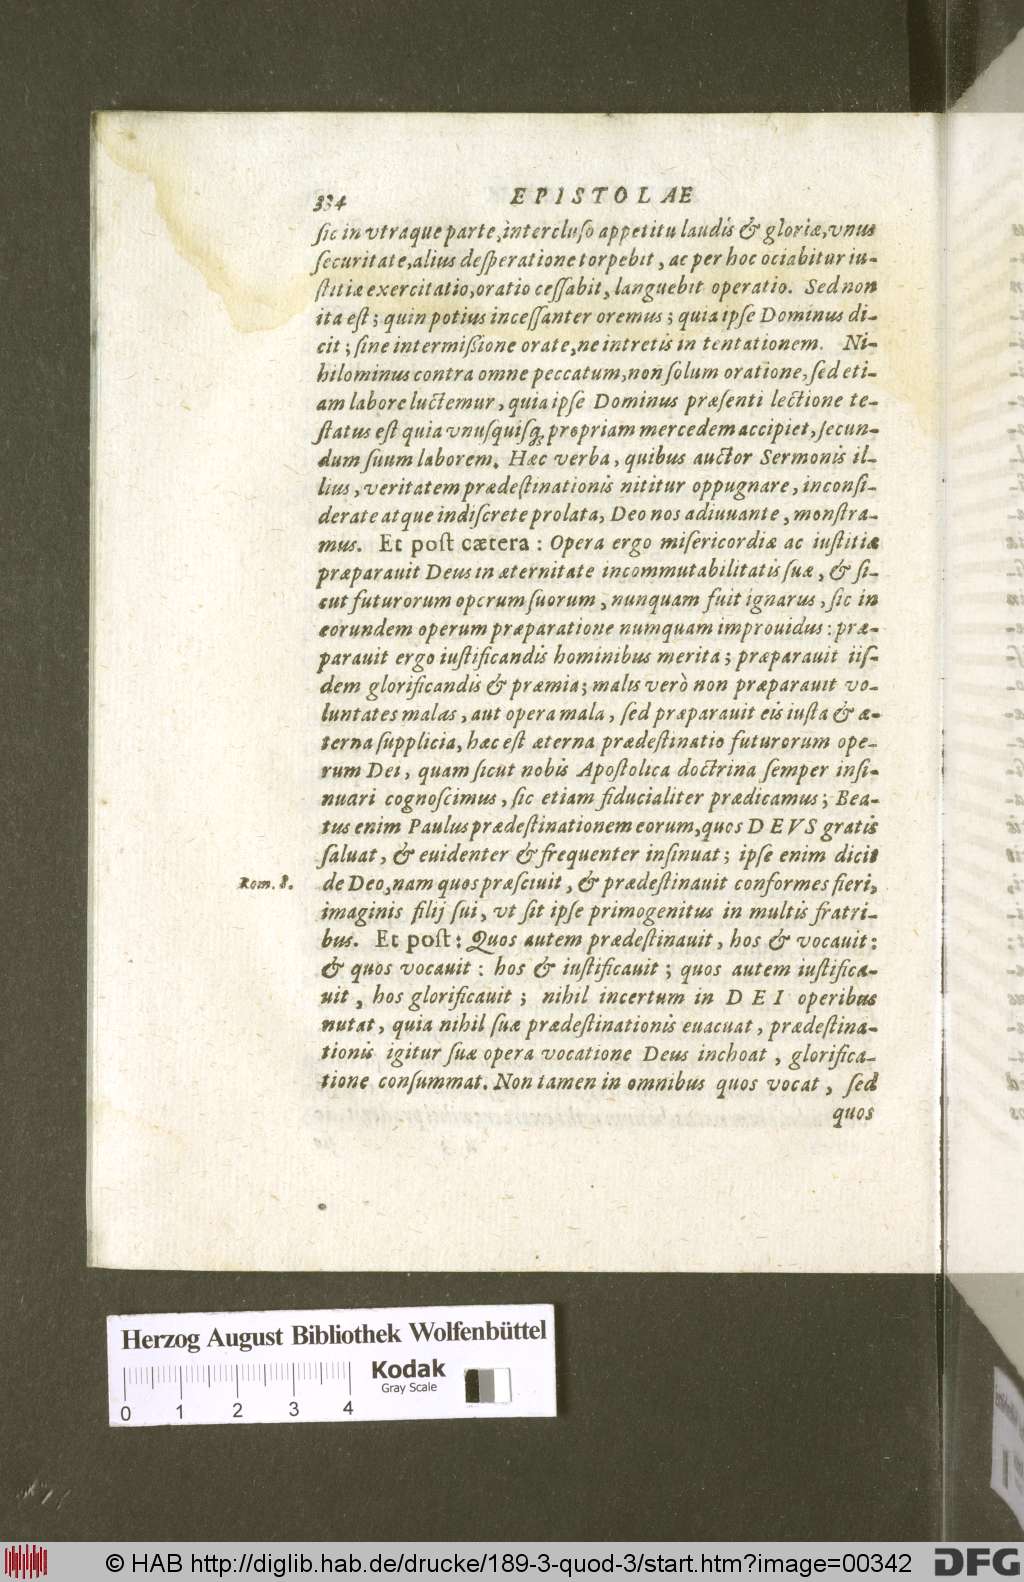 334 EPISTOLAE
sic in vtraque parte, intercluso appetitu laudis & gloriæ, vnus
securitate, alius desperatione torpebit, ac per hoc ociabitur iu-
stitiæ exercitatio, oratio cessabit, languebit operatio. Sed non
ita est; quin potius incessanter oremus; quia ipse Dominus di-
cit; sine intermißione orate, ne intretis in tentationem. Ni-
hilominus contra omne peccatum, non solum oratione, sed eti-
am labore luctemur, quia ipse Dominus præsenti lectione te-
status est quia vnusquisq; propriam mercedem accipiet, secun-
dum suum laborem. Hæc verba, quibus auctor Sermonis il-
lius, veritatem prædestinationis nititur oppugnare, inconsi-
derate atque indiscrete prolata, Deo nos adiuuante, monstra-
mus. Et post cætera: Opera ergo misericordiæ ac iustitiæ
præparauit Deus in æternitate incommutabilitatis suæ, & si-
cut futurorum operum suorum, nunquam fuit ignarus, sic in
eorundem operum præparatione numquam improuidus: præ-
parauit ergo iustificandis hominibus merita; præparauit iis-
dem glorificandis & præmia; malis verò non præparauit vo-
luntates malas, aut opera mala, sed præparauit eis iusta & æ-
terna supplicia, hæc est æterna prædestinatio futurorum ope-
rum Dei, quam sicut nobis Apostolica doctrina semper insi-
nuari cognoscimus, sic etiam fiducialiter prædicamus; Bea-
tus enim Paulus prædestinationem eorum, quos DEVS gratis
saluat, & euidenter & frequenter insinuat; ipse enim dicit
Rom. 8. de Deo, nam quos præsciuit, & prædestinauit conformes fieri,
imaginis filij sui, vt sit ipse primogenitus in multis fratri-
bus. Et post: Quos autem prædestinauit, hos & vocauit:
& quos vocauit: hos & iustificauit; quos autem iustifica-
uit, hos glorificauit; nihil incertum in DEI operibus
nutat, quia nihil suæ prædestinationis euacuat, prædestina-
tionis igitur suæ opera vocatione Deus inchoat, glorifica-
tione consummat. Non tamen in omnibus quos vocat, sed
quos
Herzog August Bibliothek Wolfenbüttel
Kodak
Gray Scale
0 1 2 3 4
© HAB http://diglib.hab.de/drucke/189-3-quod-3/start.htm?image=00342
DFG